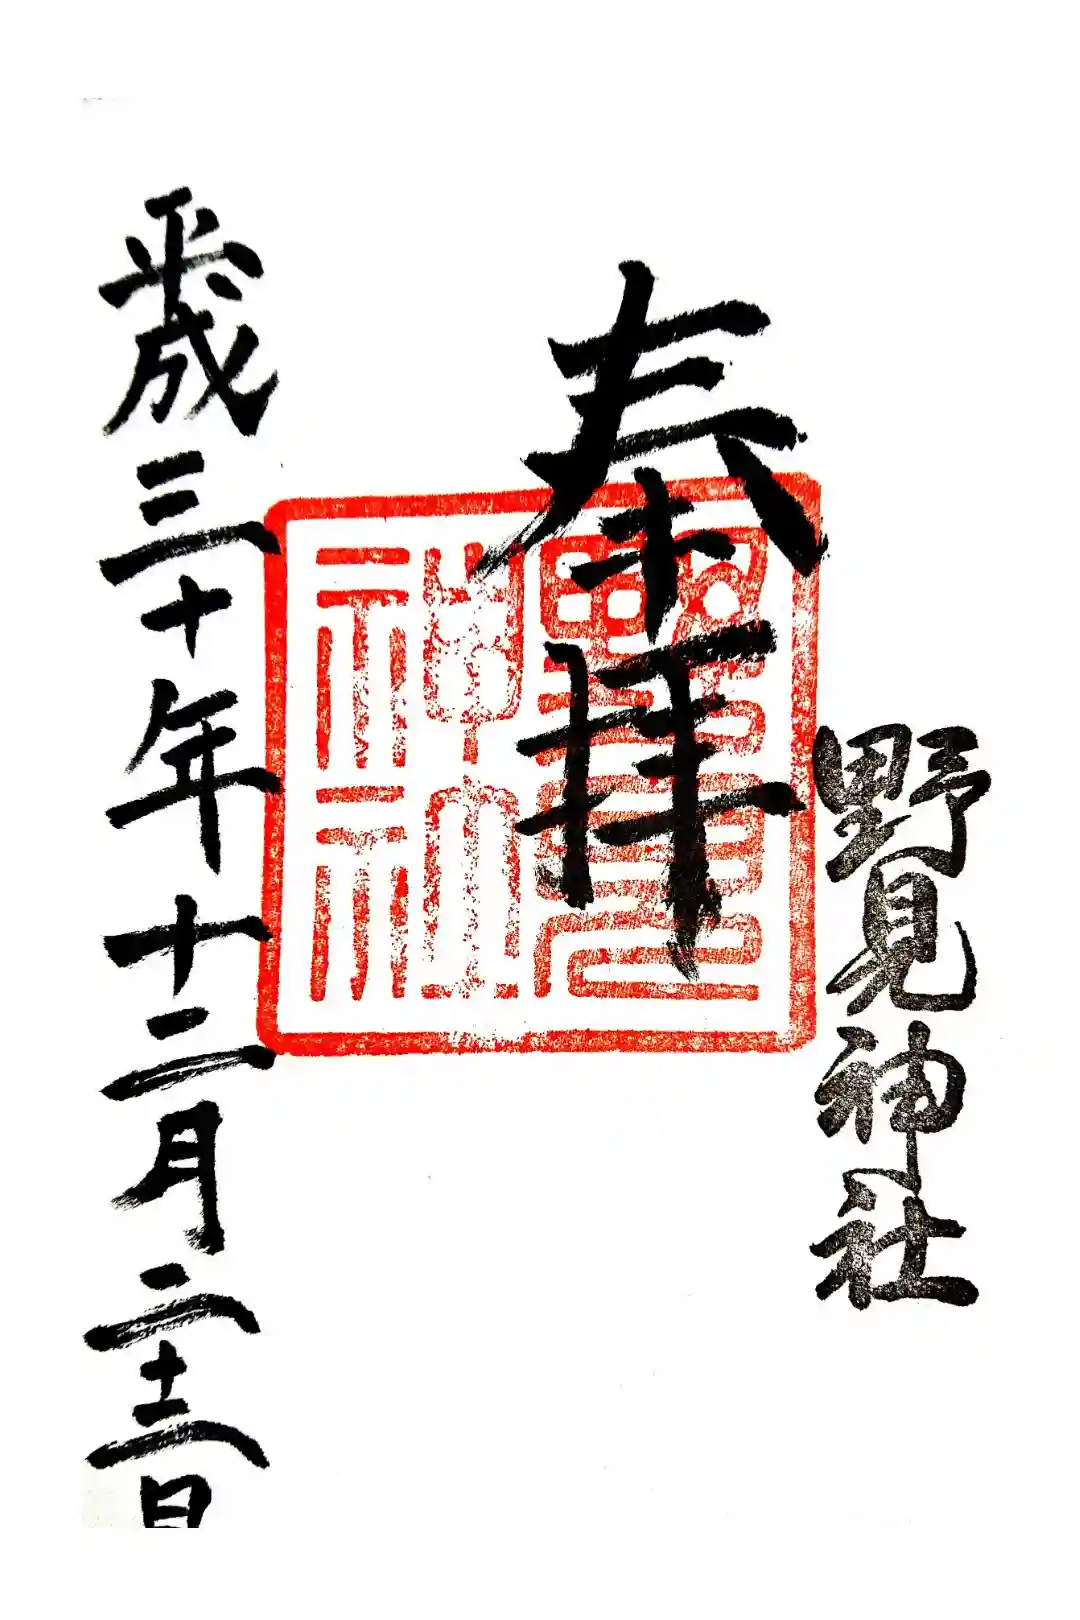 野見神社
奉拝
野見
神社
平成三十年十二月二十二日